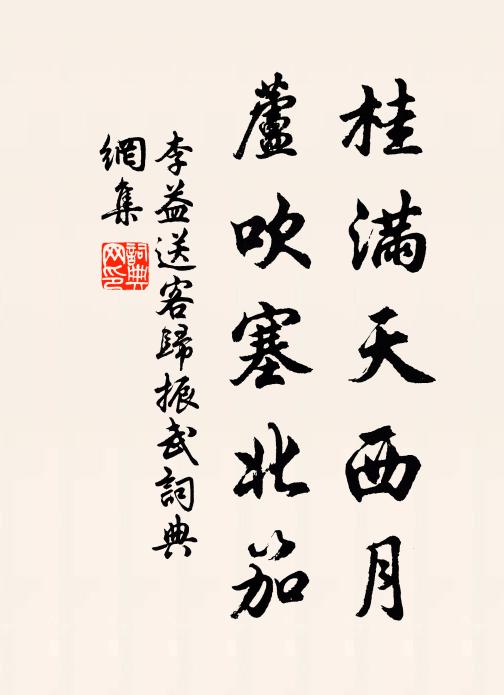 桂滿天西月
蘆吹塞北笳
李益送客歸振武詞典
網集
詞典
网印